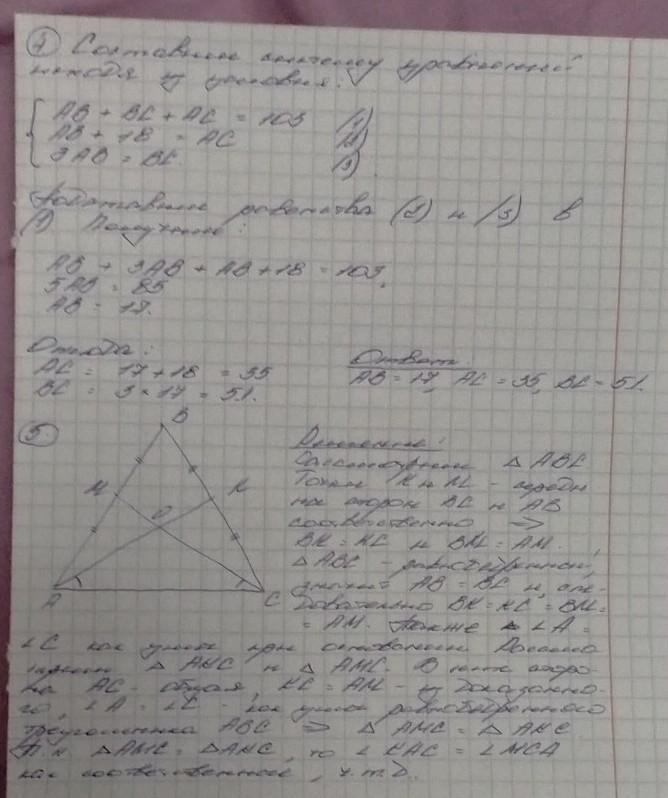 4) Составим систему уравнений
исходя из условия:
AB + BC + AC = 103 (1)
AB + 18 = AC (2)
3AB = BC (3)
Подставим равенства (2) и (3) в
(1) Получим:
AB + 3AB + AB + 18 = 103,
5AB = 85
AB = 17.
Отсюда:
AC = 17 + 18 = 35
BC = 3 × 17 = 51.
Ответ:
AB = 17, AC = 35, BC = 51.
5.
B
M
K
O
A
C
Решение:
Рассмотрим △ ABC
Точки K и M - середи
на сторон BC и AB
соответственно ⇒
BK = KC и BM = AM.
△ABC - равнобедренный,
значит AB = BC и, сле-
довательно BK = KC = BM =
= AM. Также ∠A =
∠C как углы при основании. Рассмо
трим △ AKC и △ AMC. В них сторо-
на AC - общая, KC = AM - из доказанно-
го, ∠A = ∠C - как углы равнобедренного
треугольника ABC ⇒ △ AMC = △ AKC
Т.к △AMC = △AKC, то ∠ KAC = ∠MCA
как соответственные, ч.т.д.